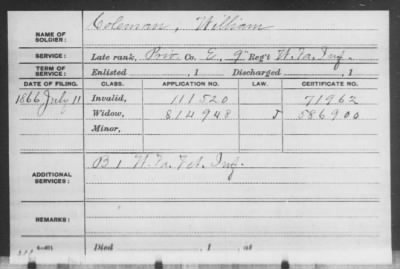 NAME OF SOLDIER: Coleman, William
SERVICE: Late rank, Priv. Co. E, 9 Reg't W. Va. Inf.
TERM OF SERVICE: Enlisted , 1 Discharged , 1
DATE OF FILING. CLASS. APPLICATION NO. LAW. CERTIFICATE NO.
1866 July 11 Invalid, 111520 71962
Widow, 814948 J 586900
Minor,
ADDITIONAL SERVICES: B 1 W. Va. Vet. Inf.
REMARKS:
Died , 1 , at